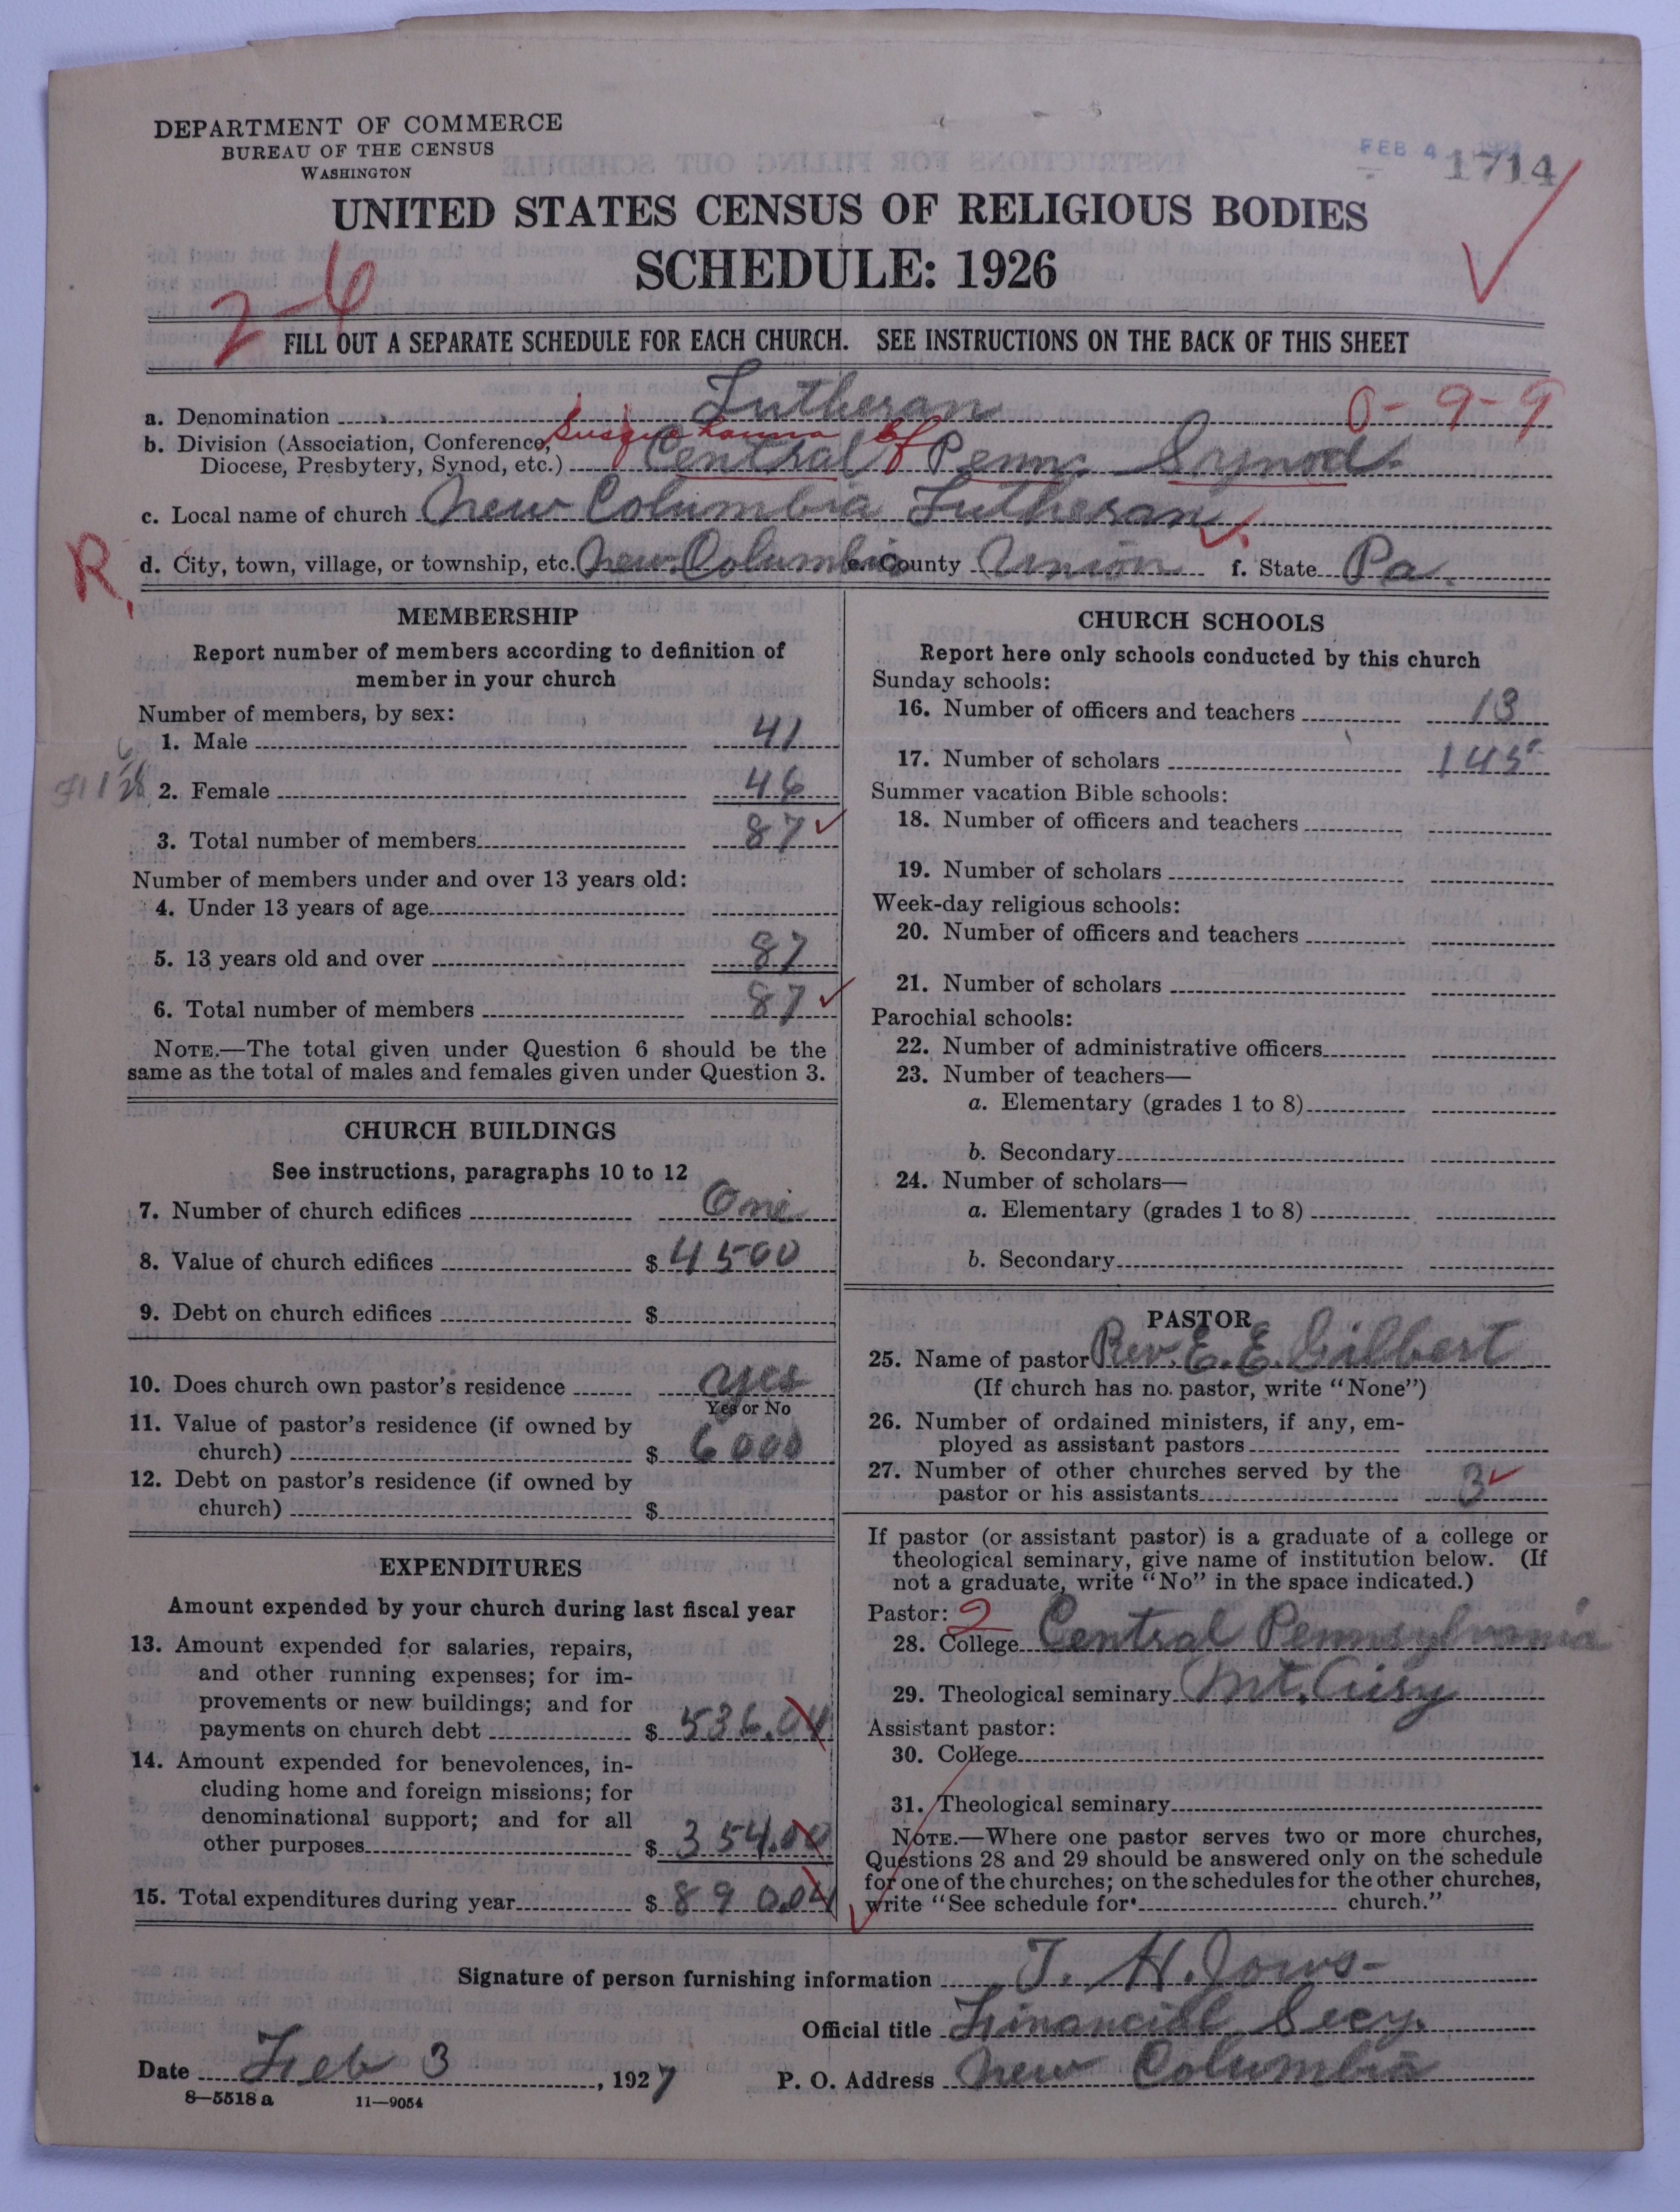 DEPARTMENT OF COMMERCE
BUREAU OF THE CENSUS
WASHINGTON
FEB 4
1714
UNITED STATES CENSUS OF RELIGIOUS BODIES
SCHEDULE: 1926
2-6
FILL OUT A SEPARATE SCHEDULE FOR EACH CHURCH. SEE INSTRUCTIONS ON THE BACK OF THIS SHEET
a. Denomination Lutheran 0-9-9
b. Division (Association, Conference, Susquehanna of
Diocese, Presbytery, Synod, etc.) Central Penn. Synod.
c. Local name of church New Columbia Lutheran
R. d. City, town, village, or township, etc. New Columbia e. County Union f. State Pa.
MEMBERSHIP
Report number of members according to definition of
member in your church
Number of members, by sex:
1. Male 41
2. Female 46
3. Total number of members 87
Number of members under and over 13 years old:
4. Under 13 years of age
5. 13 years old and over 87
6. Total number of members 87
NOTE.—The total given under Question 6 should be the
same as the total of males and females given under Question 3.
CHURCH BUILDINGS
See instructions, paragraphs 10 to 12
7. Number of church edifices One
8. Value of church edifices $ 4500
9. Debt on church edifices $
10. Does church own pastor's residence yes
Yes or No
11. Value of pastor's residence (if owned by
church) $ 6000
12. Debt on pastor's residence (if owned by
church) $
EXPENDITURES
Amount expended by your church during last fiscal year
13. Amount expended for salaries, repairs,
and other running expenses; for im-
provements or new buildings; and for
payments on church debt $ 536.04
14. Amount expended for benevolences, in-
cluding home and foreign missions; for
denominational support; and for all
other purposes $ 354.00
15. Total expenditures during year $ 890.04
CHURCH SCHOOLS
Report here only schools conducted by this church
Sunday schools:
16. Number of officers and teachers 13
17. Number of scholars 145
Summer vacation Bible schools:
18. Number of officers and teachers
19. Number of scholars
Week-day religious schools:
20. Number of officers and teachers
21. Number of scholars
Parochial schools:
22. Number of administrative officers
23. Number of teachers—
a. Elementary (grades 1 to 8)
b. Secondary
24. Number of scholars—
a. Elementary (grades 1 to 8)
b. Secondary
PASTOR
25. Name of pastor Rev. E. E. Gilbert
(If church has no pastor, write "None")
26. Number of ordained ministers, if any, em-
ployed as assistant pastors
27. Number of other churches served by the
pastor or his assistants 3
If pastor (or assistant pastor) is a graduate of a college or
theological seminary, give name of institution below. (If
not a graduate, write "No" in the space indicated.)
Pastor: 2
28. College Central Pennsylvania
29. Theological seminary Mt. Airy
Assistant pastor:
30. College
31. Theological seminary
NOTE.—Where one pastor serves two or more churches,
Questions 28 and 29 should be answered only on the schedule
for one of the churches; on the schedules for the other churches,
write "See schedule for church."
Signature of person furnishing information T. H.
Official title Financial Secy.
Date Feb 3, 1927 P. O. Address New Columbia
8-5518 a 11-9054